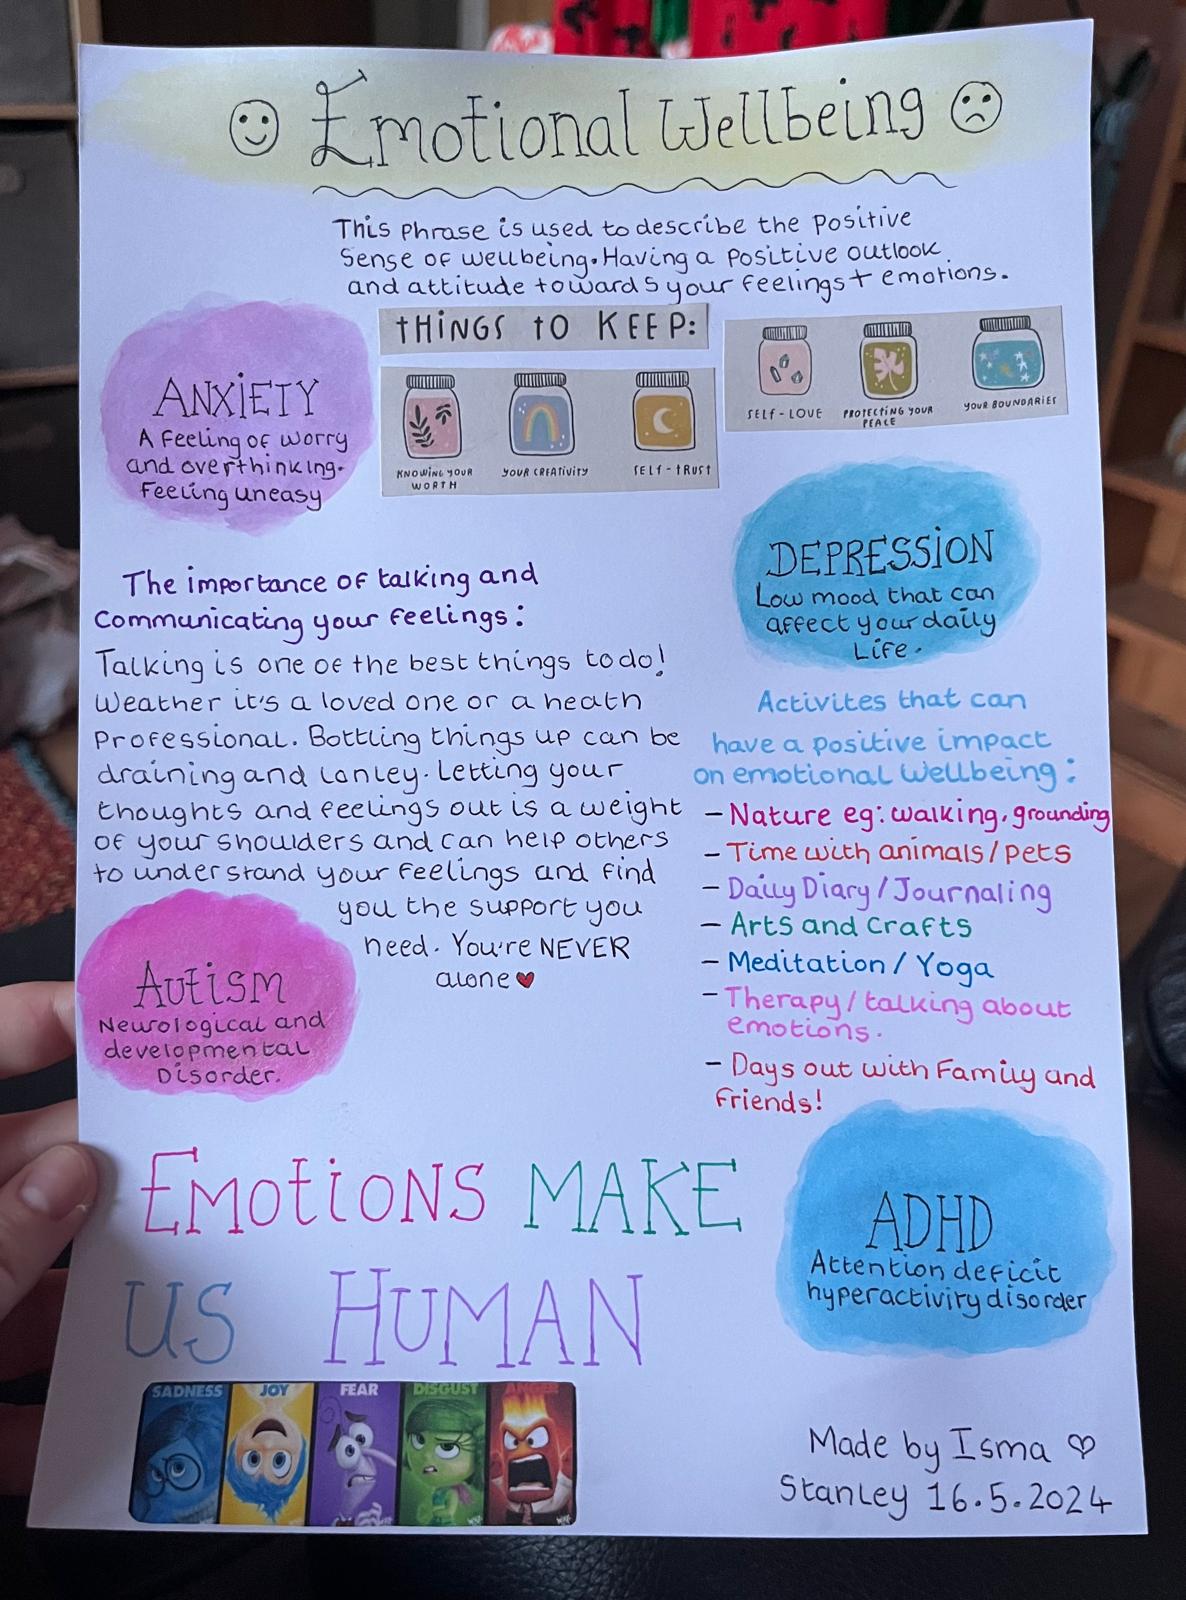 Emotional Wellbeing
This phrase is used to describe the positive
sense of wellbeing. Having a positive outlook
and attitude towards your feelings + emotions.
ANXIETY
A feeling of worry
and overthinking.
Feeling uneasy
THINGS TO KEEP:
KNOWING YOUR
WORTH
YOUR CREATIVITY
SELF-TRUST
SELF-LOVE
PROTECTING YOUR
PEACE
YOUR BOUNDARIES
DEPRESSION
Low mood that can
affect your daily
Life.
The importance of talking and
communicating your feelings:
Talking is one of the best things to do!
Weather it's a loved one or a heath
professional. Bottling things up can be
draining and lonley. Letting your
thoughts and feelings out is a weight
of your shoulders and can help others
to understand your feelings and find
you the support you
need. You're NEVER
alone ♥
Activites that can
have a positive impact
on emotional wellbeing:
- Nature eg: walking, grounding
- Time with animals/pets
- Daily Diary/Journaling
- Arts and Crafts
- Meditation/Yoga
- Therapy/talking about
emotions.
- Days out with Family and
friends!
Autism
Neurological and
developmental
Disorder.
ADHD
Attention deficit
hyperactivity disorder
EMOTIONS MAKE
US HUMAN
SADNESS
JOY
FEAR
DISGUST
ANGER
Made by Isma ♡
Stanley 16.5.2024